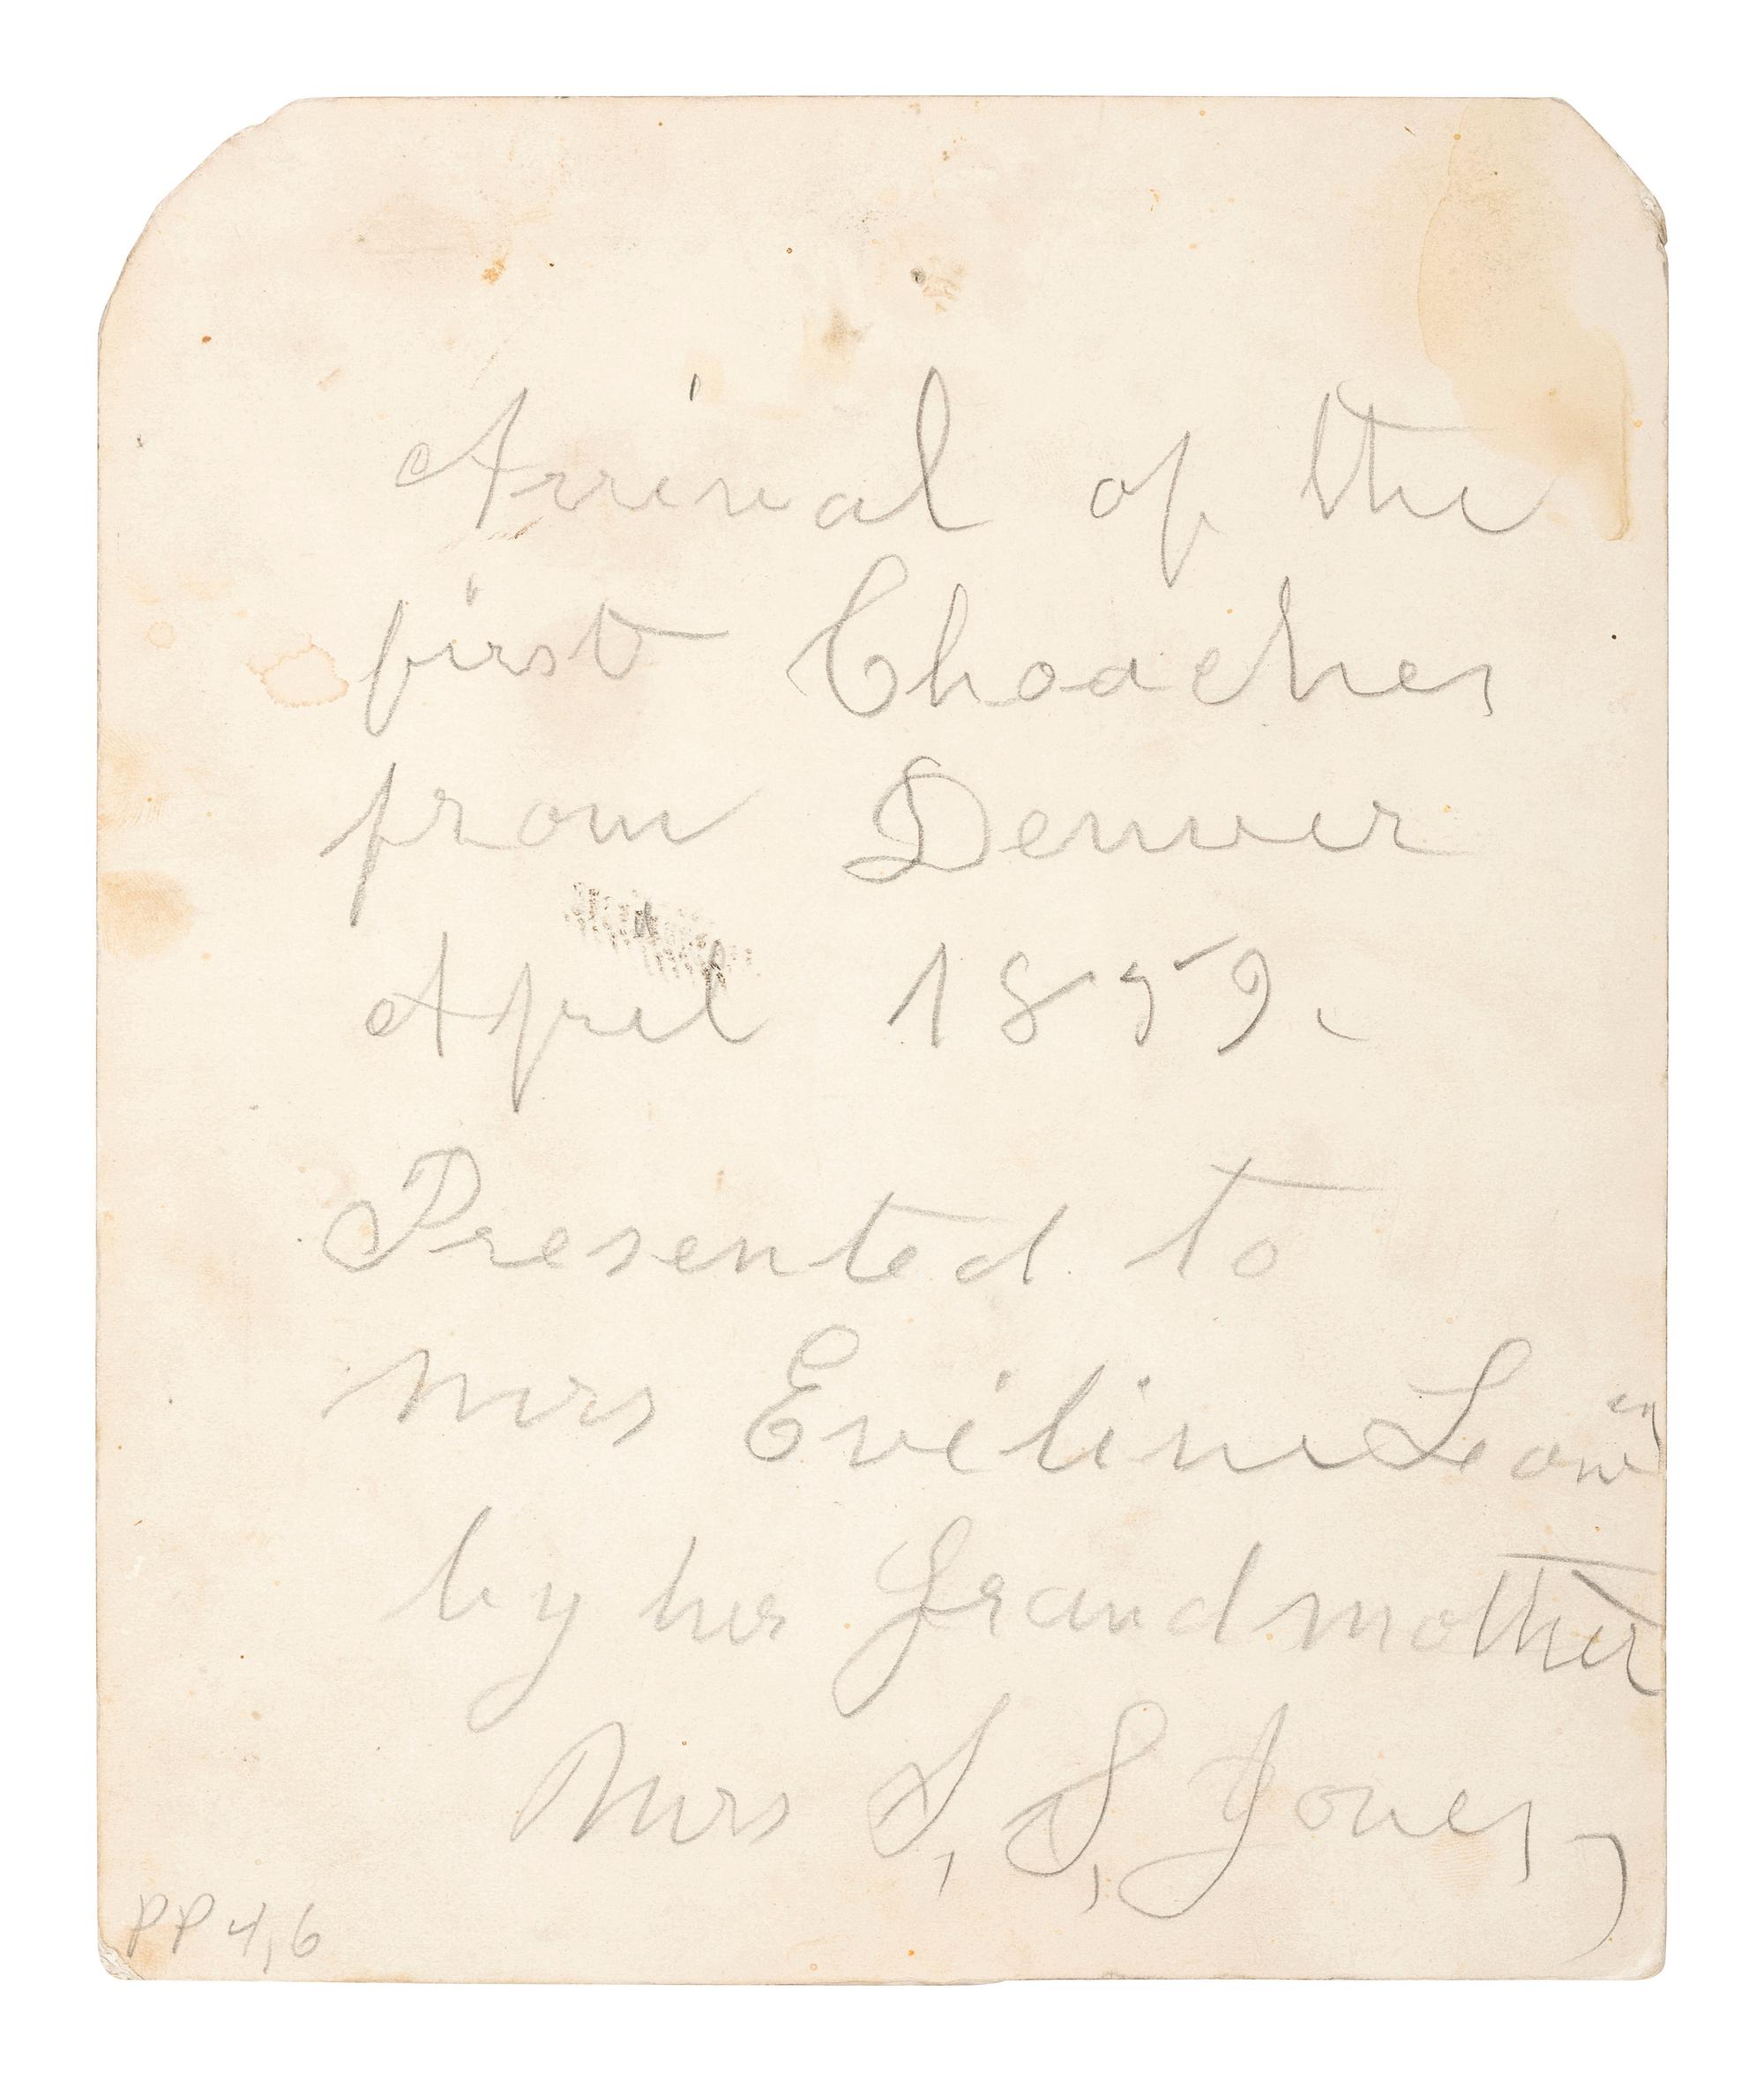 Arrival of the
first Choaches
from Denver
April 1859.
Presented to
Mrs Eviline
by her Grandmother
Mrs S, S, Jones,
PP 4,6